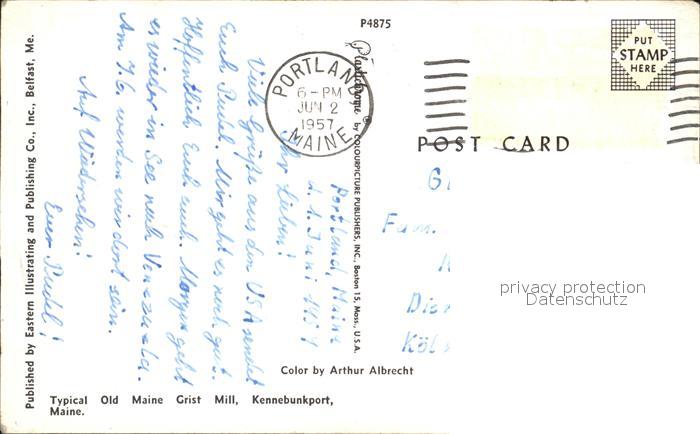 P4875
PUT
STAMP
HERE
PORTLAND
6-PM
JUN 2
1957
MAINE
POST CARD
Plastichrome ® by COLOURPICTURE PUBLISHERS, INC., Boston 15, Mass., U.S.A.
Published by Eastern Illustrating and Publishing Co., Inc., Belfast, Me.
Portland, Maine
d. 1. Juni 1957
Ihr Lieben!
Viele Grüße aus den USA sendet
Euch Pudel. Mir geht es noch gut.
Hoffentlich Euch auch. Morgen geht
es wieder in See nach Venezuela.
Am 7.6. werden wir dort sein.
Auf Wiedersehen!
Euer Pudel!
Fam.
privacy protection
Datenschutz
Color by Arthur Albrecht
Typical Old Maine Grist Mill, Kennebunkport,
Maine.